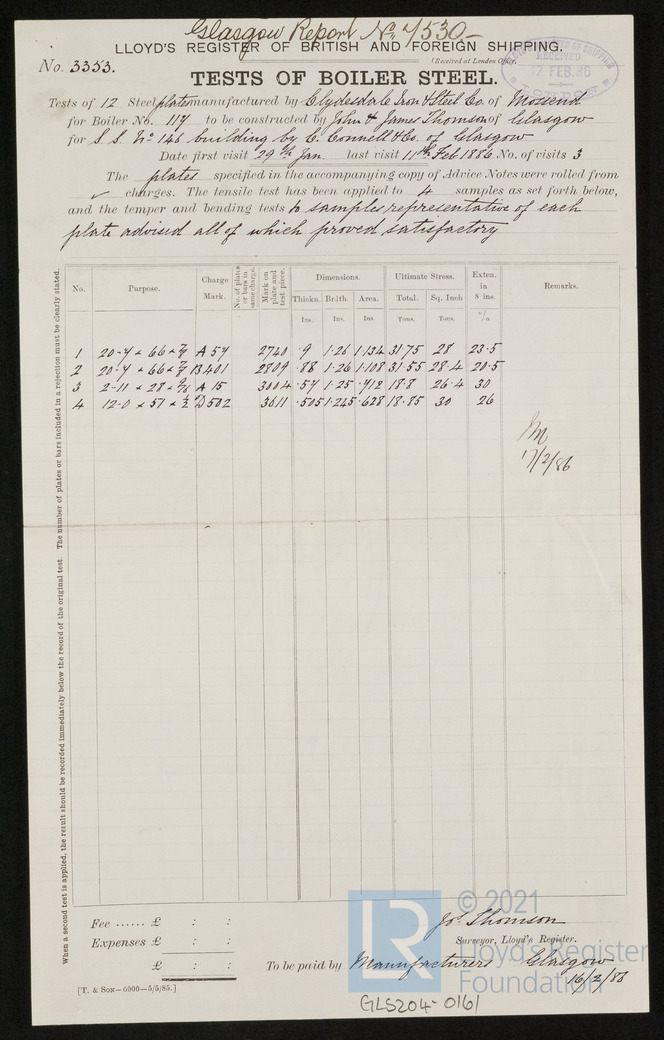 Glasgow Report No. 7530
LLOYD'S REGISTER OF BRITISH AND FOREIGN SHIPPING.
No. 3353.
(Received at London Office,
RECEIVED
17 FEB. 86
TESTS OF BOILER STEEL.
Tests of 12 Steel plates manufactured by Clydesdale Iron & Steel Co. of Mossend
for Boiler No. 117 to be constructed by John & James Thomson of Glasgow
for S.S. No 146 building by C. Connell & Co. of Glasgow
Date first visit 29th Jan. last visit 11th Feb 1886 No. of visits 3
The plates specified in the accompanying copy of Advice Notes were rolled from
charges. The tensile test has been applied to 4 samples as set forth below,
and the temper and bending tests to samples representative of each
plate advised all of which proved satisfactory
No. Purpose. Charge Mark. No. of plates or bars in same charge. Mark on plate and test piece. Dimensions. Ultimate Stress. Exten. in 8 ins. Remarks.
Thickn. Brdth. Area. Total. Sq. Inch
Ins. Ins. Ins. Tons. Tons. %
1 20-7 × 66 × 7/8 A 57 2740 .9 1.26 1.134 31.75 28 23.5
2 20-7 × 66 × 7/8 B401 2809 .88 1.26 1.108 31.55 28.4 20.5
3 2-11 × 28 × 9/16 A 15 3004 .57 1.25 .712 18.8 26.4 30
4 12-0 × 57 × 1/2 D502 3611 .505 1.245 .628 18.85 30 26
17/2/86
When a second test is applied, the result should be recorded immediately below the record of the original test. The number of plates or bars included in a rejection must be clearly stated.
Fee ...... £ : :
Expenses £ : :
£ : :
Jos. Thomson
Surveyor, Lloyd's Register.
To be paid by Manufacturers Glasgow
16/2/86
[T. & Son—6000—5/5/85.]
GLS204-0161
LR
© 2021
Lloyd's Register
Foundation